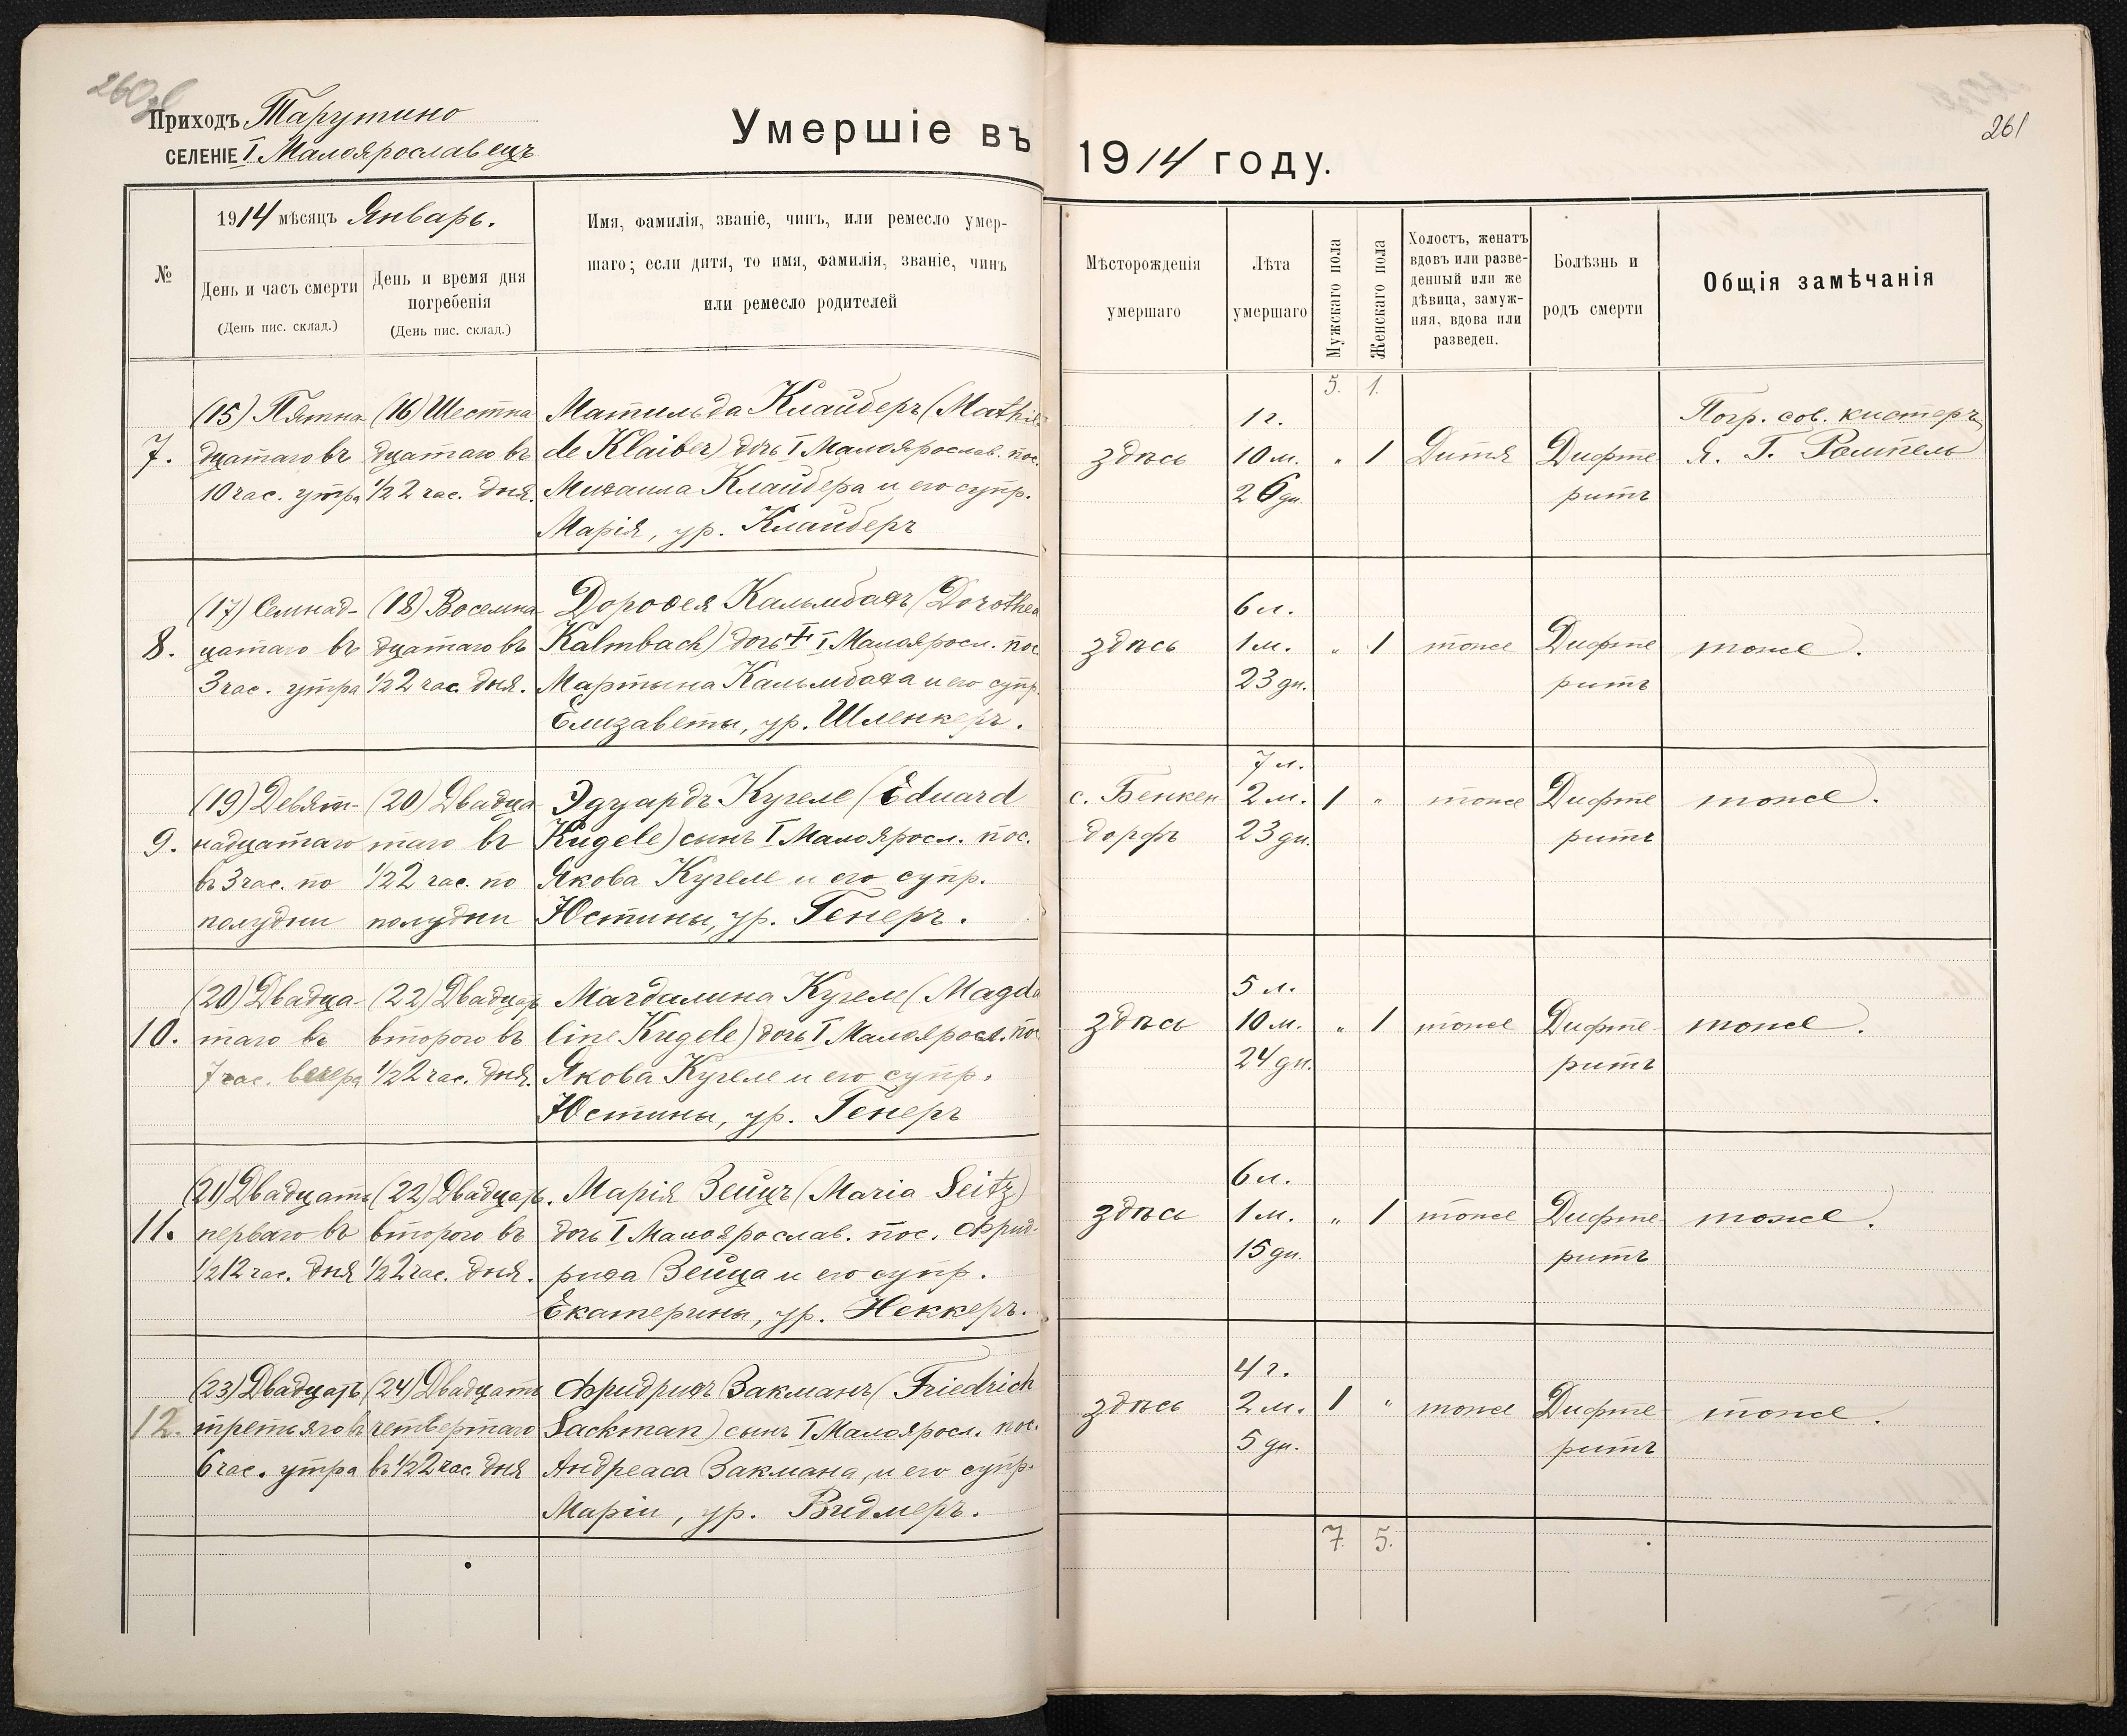 260об
Приходъ Тарутино
СЕЛЕНІЕ I Малоярославецъ
Умершіе въ 1914 году.
261
№
1914 мѣсяцъ Январь.
День и часъ смерти
(День пис. склад.)
День и время дня
погребенія
(День пис. склад.)
Имя, фамилія, званіе, чинъ, или ремесло умер-
шаго; если дитя, то имя, фамилія, званіе, чинъ
или ремесло родителей
Мѣсторожденія
умершаго
Лѣта
умершаго
Мужскаго пола
Женскаго пола
Холостъ, женатъ
вдовъ или разве-
денный или же
дѣвица, замуж-
няя, вдова или
разведен.
Болѣзнь и
родъ смерти
Общія замѣчанія
5. 1.
7.
(15) Пятна
дцатаго въ
10 час. утра
(16) Шестна
дцатаго въ
½2 час. дня.
Матильда Клайберъ (Mathil
de Klaiber) дочь I Малоярослав. пос.
Михаила Клайбера и его супр.
Марія, ур. Клайберъ
здѣсь
1 г.
10 м.
26 дн.
" 1
Дитя
Дифте
ритъ
Погр. сов. кистеръ
Я. Г. Ремпель
8.
(17) Семнад-
цатаго въ
3 час. утра
(18) Восемна
дцатаго въ
½2 час. дня.
Доровея Кальмбахъ (Dorothea
Kalmbach) дочь I Малояросл. пос
Мартына Кальмбаха и его супр.
Елизаветы, ур. Шленкеръ.
здѣсь
6 л.
1 м.
23 дн.
" 1
тоже
Дифте
ритъ
тоже.
9.
(19) Девят-
надцатаго
въ 3 час. по
полудни
(20) Двадца
таго въ
½2 час. по
полудни
Эдуардъ Кугеле (Eduard
Kugele) сынъ I Малояросл. пос.
Якова Кугеле и его супр.
Юстины, ур. Генеръ.
с. Бенкен
дорфъ
7 л.
2 м.
23 дн.
1 "
тоже
Дифте
ритъ
тоже.
10.
(20) Двадца-
таго въ
7 час. вечера
(22) Двадцать
второго въ
½2 час. дня.
Магдалина Кугеле (Magda
line Kugele) дочь I Малояросл. пос
Якова Кугеле и его супр.
Юстины, ур. Генеръ
здѣсь
5 л.
10 м.
24 дн.
" 1
тоже
Дифте-
ритъ
тоже.
11.
(21) Двадцать
перваго въ
½12 час. дня
(22) Двадцать.
второго въ
½2 час. дня.
Марія Зейцъ (Maria Seitz)
дочь I Малоярослав. пос. Фрид-
риха Зейца и его супр.
Екатерины, ур. Неккеръ.
здѣсь
6 л.
1 м.
15 дн.
" 1
тоже
Дифте
ритъ
тоже.
12.
(23) Двадцать
третьяго въ
6 час. утра
(24) Двадцать
четвертаго
въ ½2 час. дня
Фридрихъ Закманъ (Friedrich
Sackman) сынъ I Малояросл. пос.
Андреаса Закмана, и его супр.
Маріи, ур. Видмеръ.
здѣсь
4 г.
2 м.
5 дн.
1 "
тоже
Дифте-
ритъ
тоже.
7. 5.